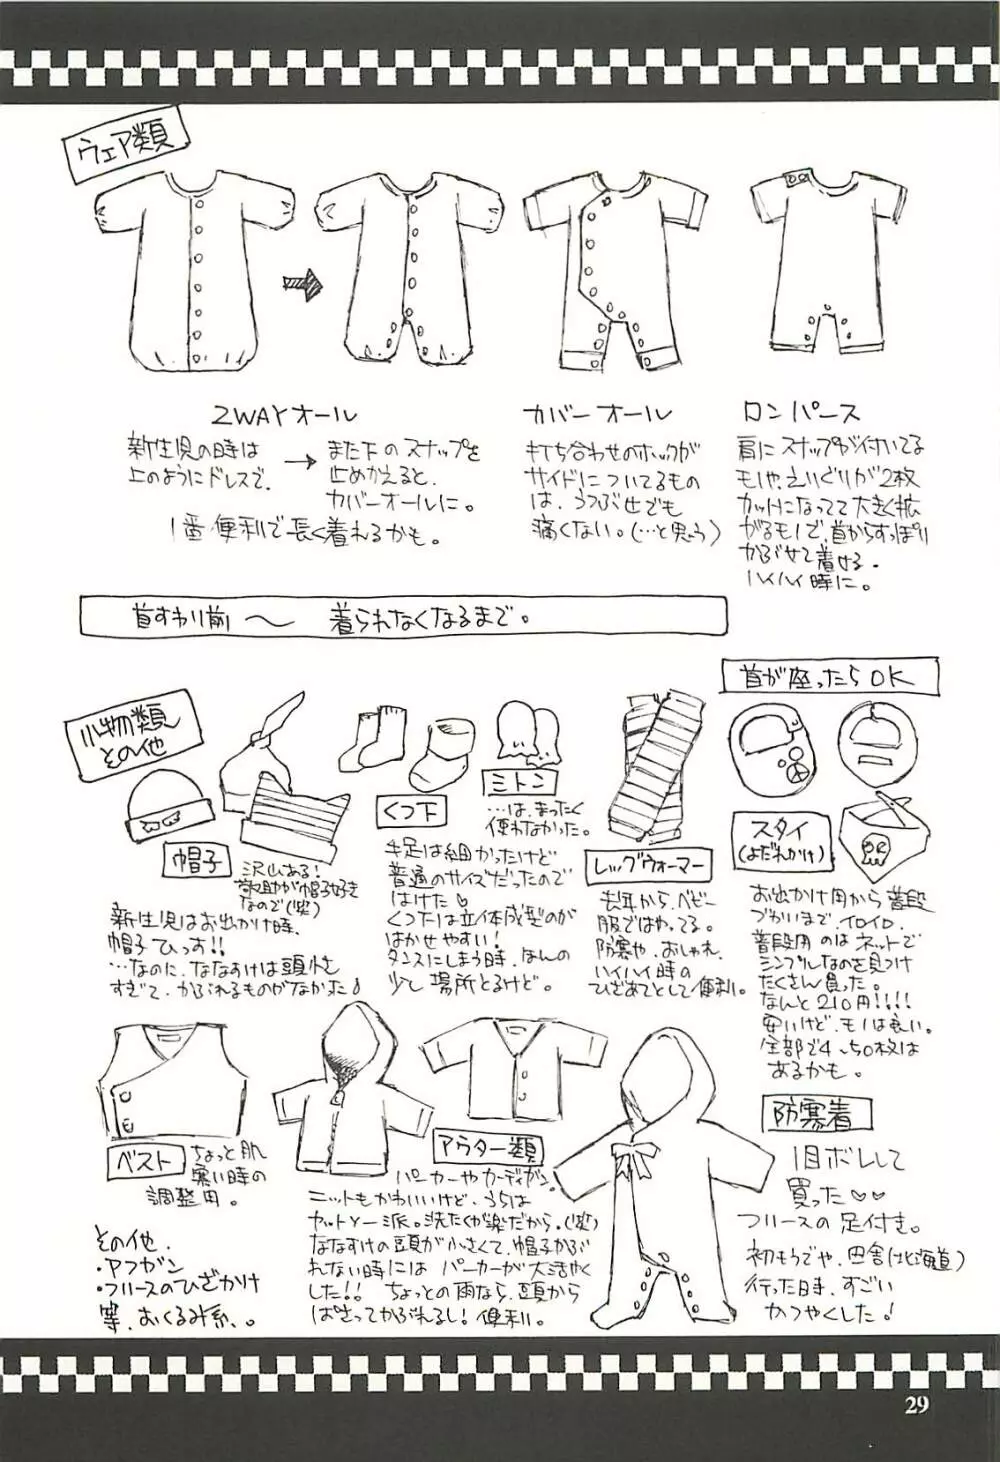 ウェア類
2WAYオール
新生児の時は
上のようにドレスで、
→
また下のスナップを
止めかえると、
カバーオールに。
1番便利で長く着れるかも。
カバーオール
打ち合わせのホックが
サイドについてるもの
は、うつぶせでも
痛くない。(…と思う)
ロンパース
肩にスナップが付いてる
モノや、えりぐりが2枚
カットになってて大きく拡
がるモノで、首からすっぽり
かぶせて着せる。
ハイハイ時に。
首すわり前 〜 着られなくなるまで。
首が座ったらOK
小物類
その他
帽子
沢山ある!
敦助が帽子好き
なので(笑)
新生児はお出かけ時、
帽子ひっす!!
…なのに、ななすけは頭小さ
すぎて、かぶれるものがなかった♪
くつ下
手足は細かったけど
普通のサイズだったので
はけた♡
くつ下は立体成型のが
はかせやすい!
タンスにしまう時、ほんの
少し場所とるけど。
ミトン
…は、まったく
使わなかった。
レッグウォーマー
去年から、ベビー
服ではやってる。
防寒や、おしゃれ、
ハイハイ時の
ひざあてとして便利。
スタイ
(よだれかけ)
お出かけ用から普段
づかいまで、イロイロ。
普段用のはネットで
シンプルなのを見つけ
たくさん買った。
なんと210円!!!!
安いけど、モノは良い。
全部で4、50枚は
あるかも。
ベスト
ちょっと肌
寒い時の
調整用。
アウター類
パーカーやカーディガン。
ニットもかわいいけど、うちは
カットソー派。洗たくが楽だから。(笑)
ななすけの頭が小さくて、帽子かぶ
れない時には パーカーが大活やく
した!! ちょっとの雨なら、頭から
ばさってかぶれるし! 便利。
防寒着
1目ボレして
買った♡♡
フリースの足付き。
初もうでや、田舎(北海道)
行った時、すごい
かつやくした!
その他、
・アフガン
・フリースのひざかけ
等、おくるみ系。。
29